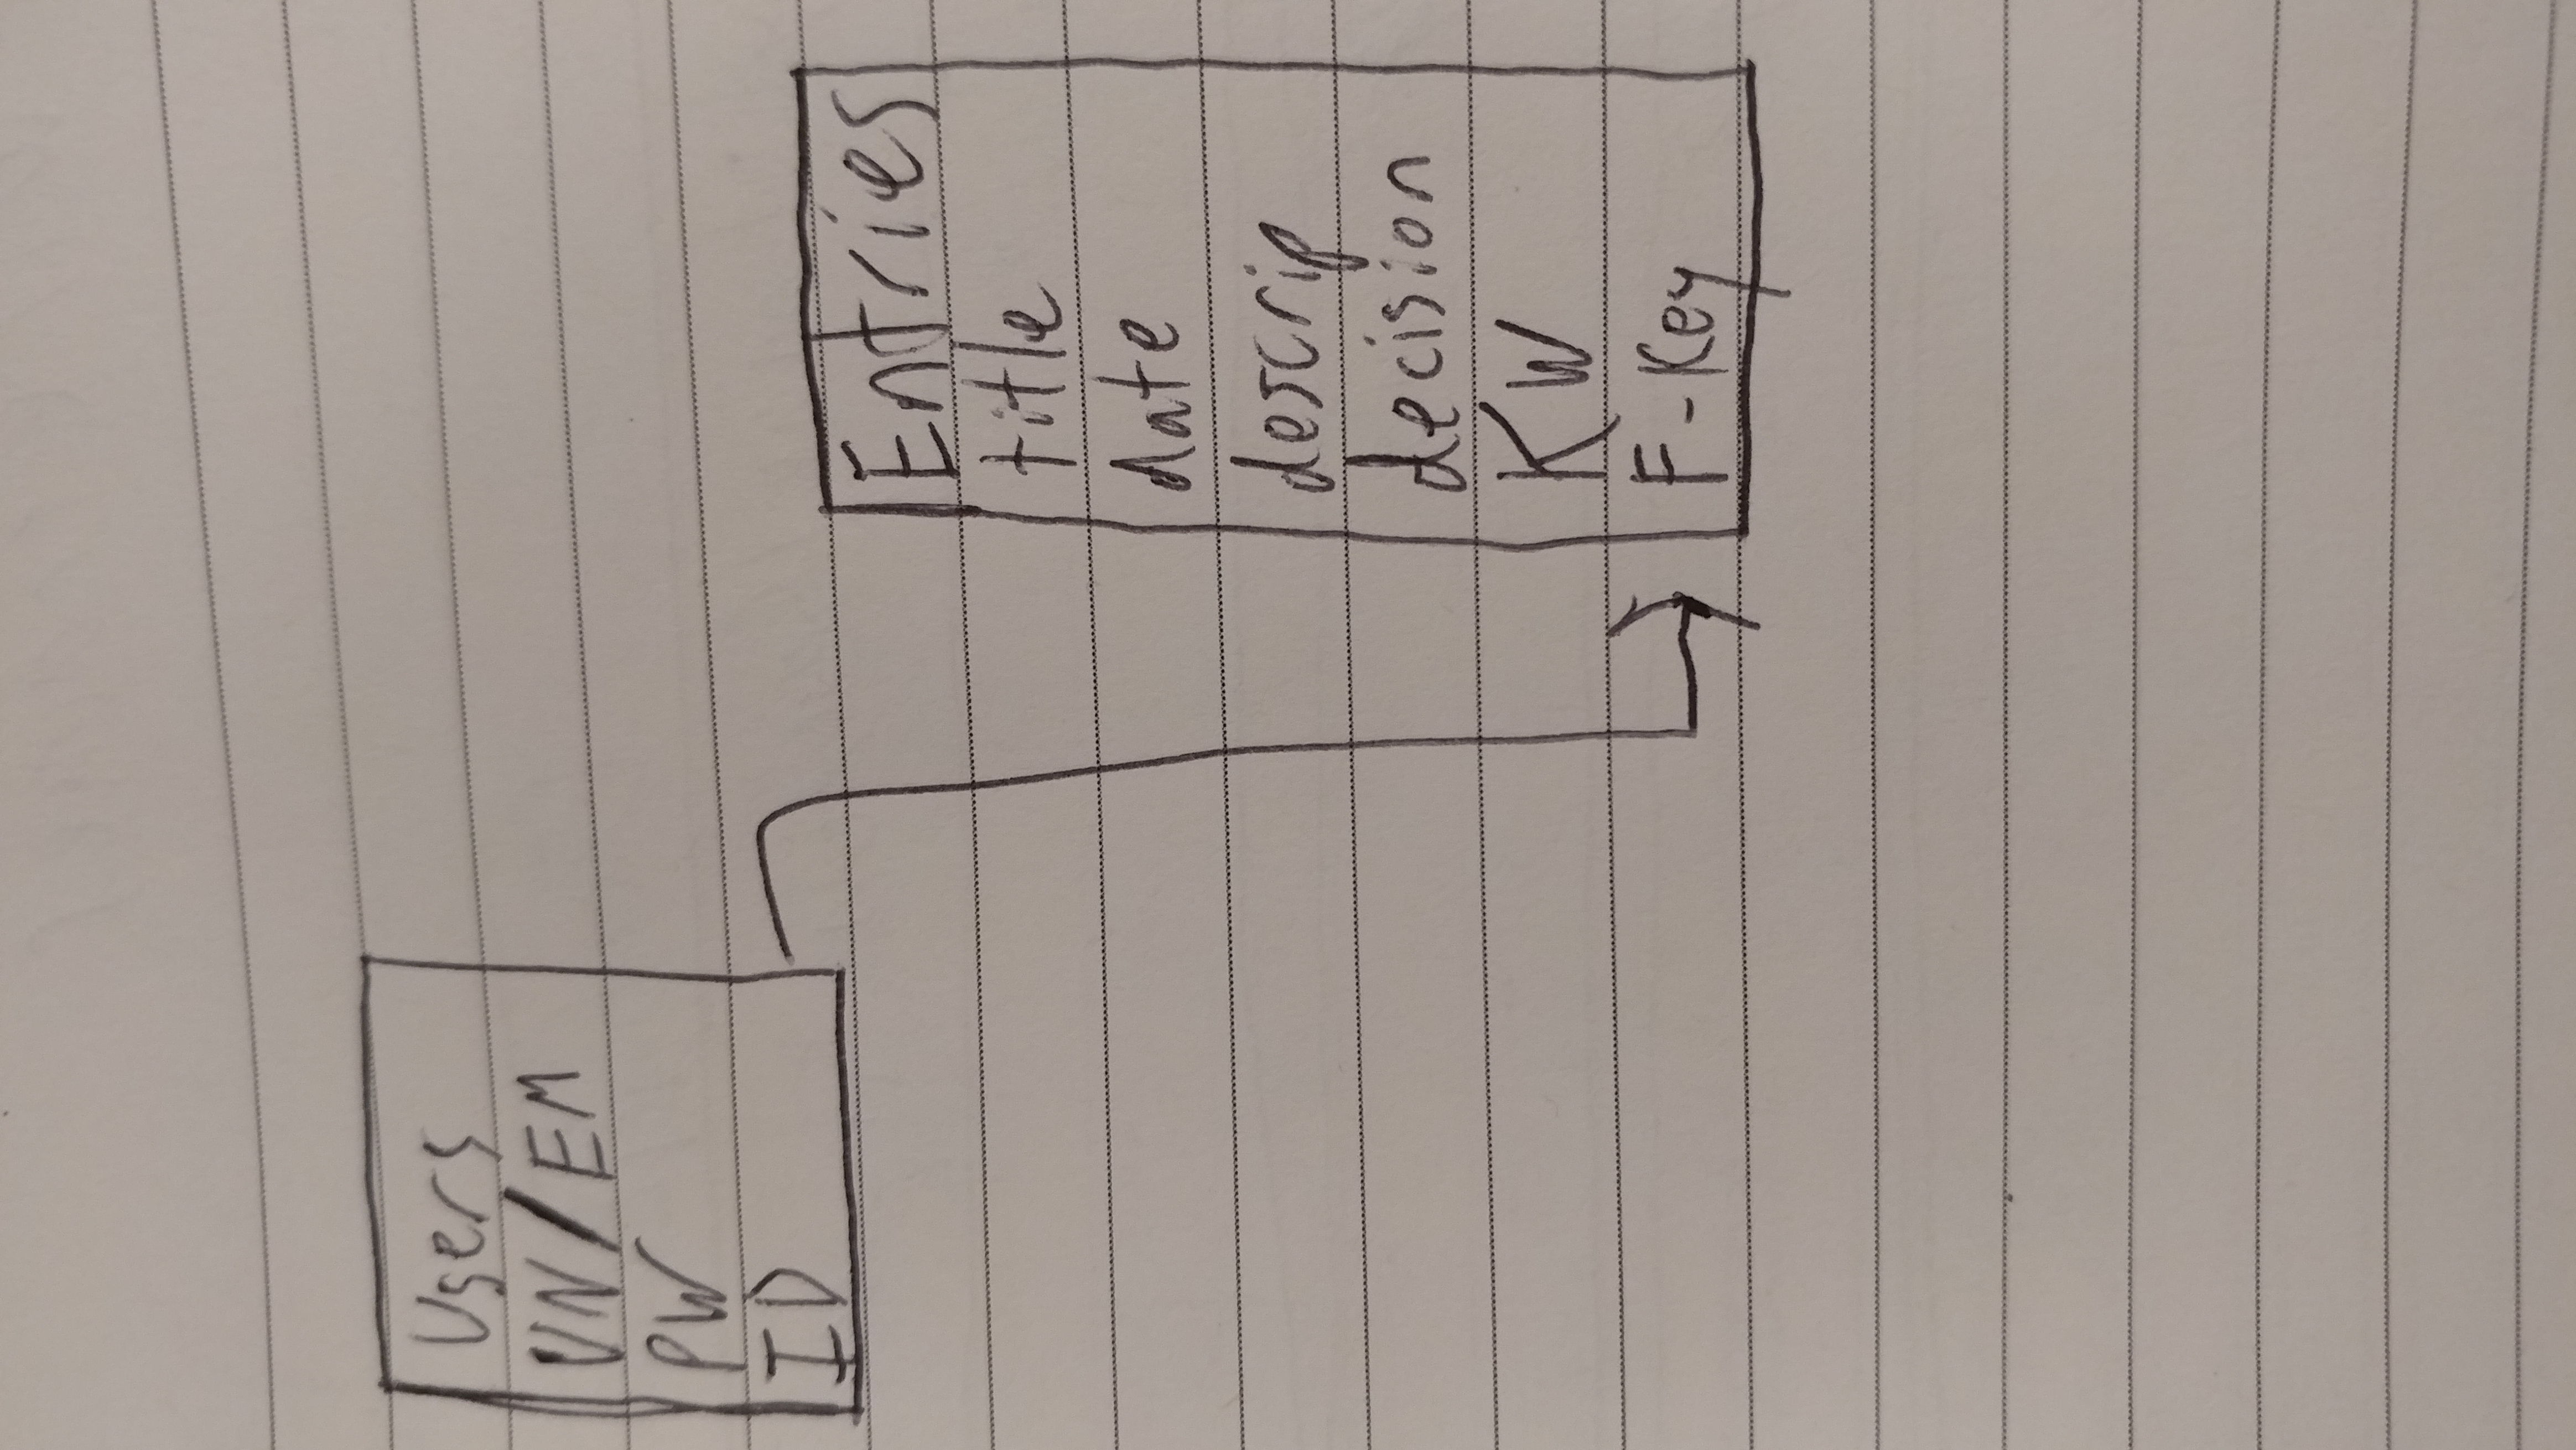 Users
UN/EM
PW
ID
Entries
title
date
descrip
decision
KW
F-Key